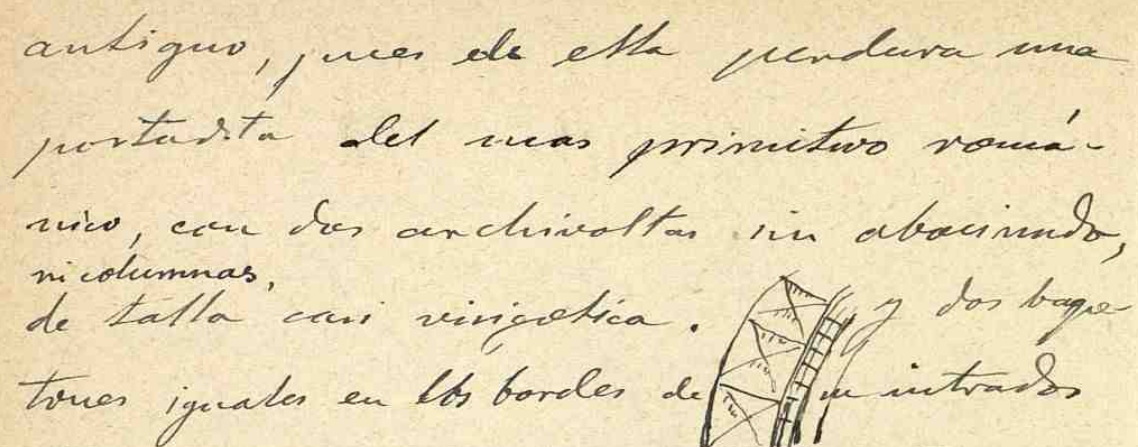 antiguo, pues de ella perdura una
portadita del mas primitivo romá-
nico, con dos archivoltas sin abocinado,
ni columnas,
de talla casi visigótica. y dos baque-
tones iguales en los bordes de su intrados